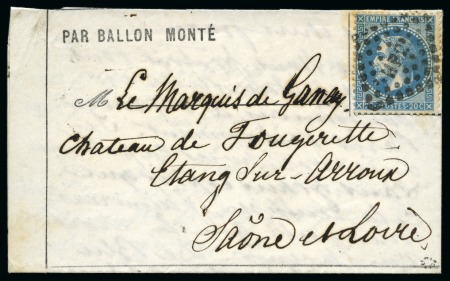 PAR BALLON MONTÉ
EMPIRE FRANÇAIS
M Le Marquis de Ganay
POSTES 20C
Chateau de Fougerette
Etang Sur-Arroux
Saône et Loire